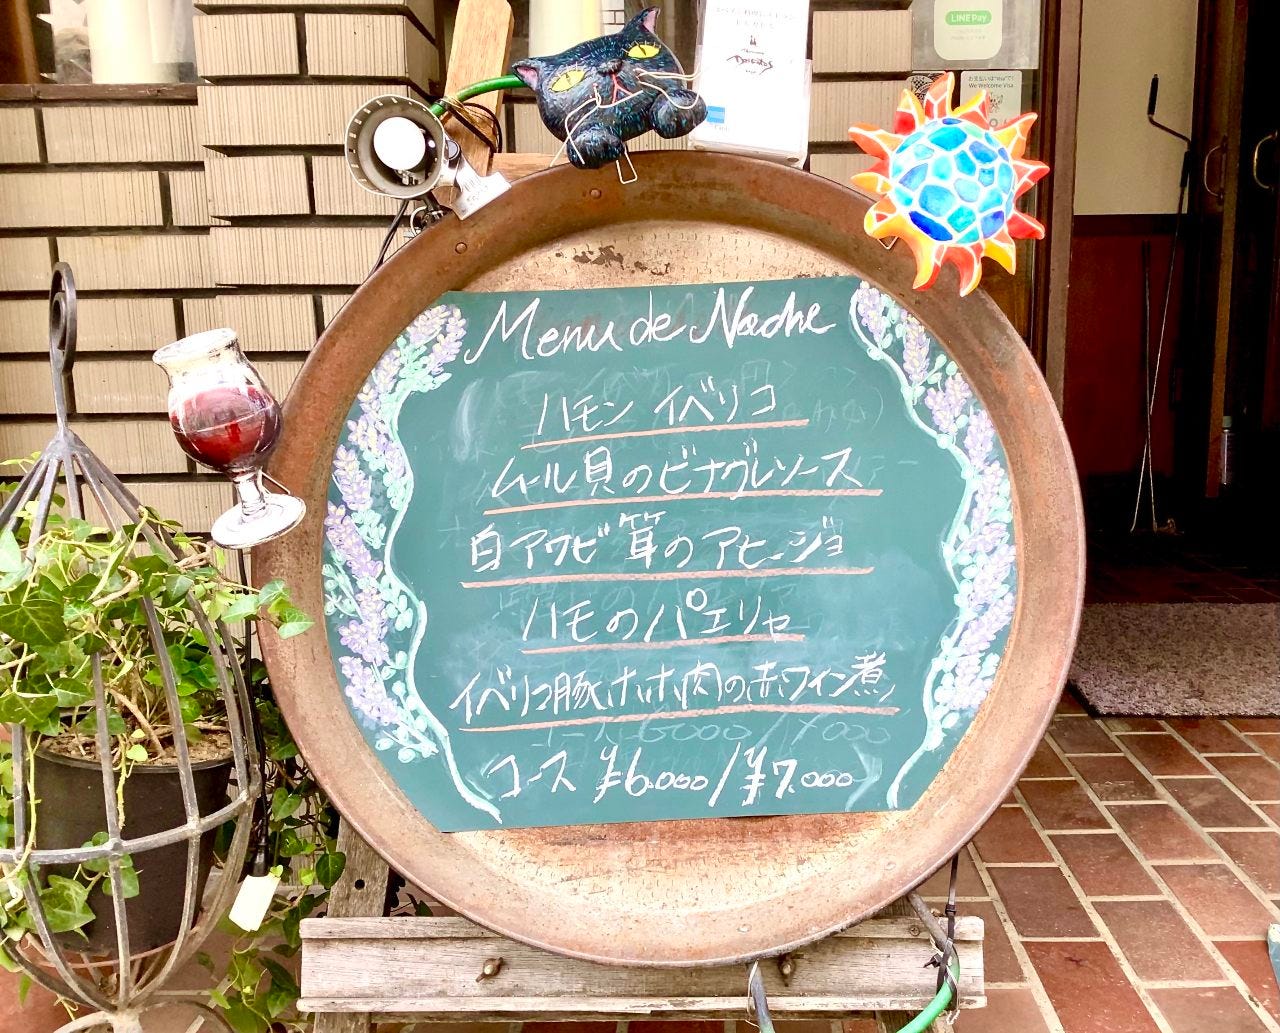 LINE Pay
お支払いはVisaで!
We Welcome Visa
Menu de Noche
ハモン イベリコ
ムール貝のビナグレソース
白アワビ茸のアヒージョ
ハモのパエリャ
イベリコ豚ホホ肉の赤ワイン煮
コース ¥6.000/¥7.000